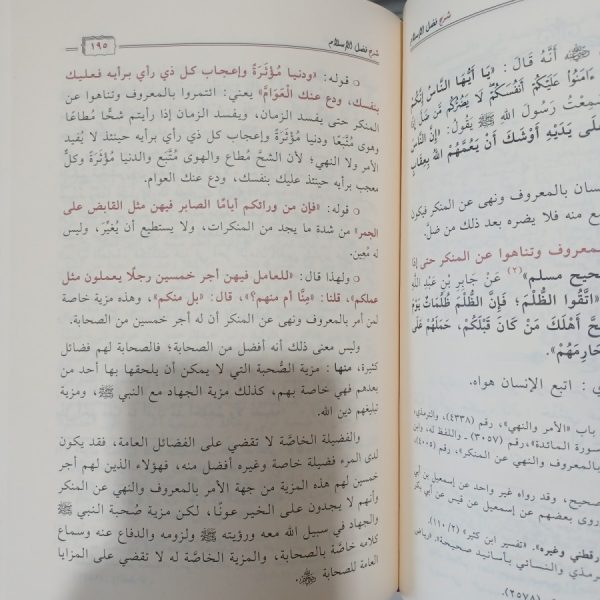 شرح فضل الإسلام
١٩٥
○ قوله: «ودنيا مُؤثَرَةً وإعجاب كل ذي رأي برأيه فعليك
بنفسك، ودع عنك الْعَوَامَّ» يعني: ائتمروا بالمعروف وتناهوا عن
المنكر حتى يفسد الزمان، ويفسد الزمان إذا رأيتم شحًّا مُطاعًا
وهوى مُتَّبَعًا ودنيا مُؤثَرَةً وإعجاب كل ذي رأي برأيه حينئذ لا يُفيد
الأمر ولا النهي؛ لأن الشحَّ مُطاع والهوى مُتَّبَع والدنيا مُؤثَرَة وكلٌّ
معجب برأيه حينئذ عليك بنفسك، ودع عنك العوام.
○ قوله: «فإن من ورائكم أيامًا الصابر فيهن مثل القابض على
الجمر» من شدة ما يجد من المنكرات، ولا يستطيع أن يُغيِّرَ، وليس
له مُعين.
○ ولهذا قال: «للعامل فيهن أجر خمسين رجلًا يعملون مثل
عملكم، قلنا: «مِنَّا أم منهم؟»، قال: «بل منكم»، وهذه مزية خاصة
لمن أمر بالمعروف ونهى عن المنكر أن له أجر خمسين من الصحابة.
وليس معنى ذلك أنه أفضل من الصحابة؛ فالصحابة لهم فضائل
كثيرة، منها: مزية الصُّحبة التي لا يمكن أن يلحقها بها أحد من
بعدهم فهي خاصة بهم، كذلك مزية الجهاد مع النبي ﷺ، ومزية
تبليغهم دين الله.
والفضيلة الخاصَّة لا تقضي على الفضائل العامة، فقد يكون
لدى المرء فضيلة خاصة وغيره أفضل منه، فهؤلاء الذين لهم أجر
خمسين لهم هذه المزية من جهة الأمر بالمعروف والنهي عن المنكر
وأنهم لا يجدون على الخير عونًا، لكن مزية صُحبة النبي ﷺ
والجهاد في سبيل الله معه ورؤيته ﷺ ولزومه والدفاع عنه وسماع
كلامه خاصة بالصحابة، والمزية الخاصَّة له لا تقضي على المزايا
العامة للصحابة .
شرح فضل الإسلام
أَنَّهُ قَالَ: «يَا أَيُّهَا النَّاسُ إِنَّكُمْ
ءَامَنُوا عَلَيْكُمْ أَنفُسَكُمْ لَا يَضُرُّكُم مَّن ضَلَّ إِذَا
سَمِعْتُ رَسُولَ اللهِ ﷺ يَقُولُ: «إِنَّ النَّاسَ
عَلَى يَدَيْهِ أَوْشَكَ أَنْ يَعُمَّهُمُ اللهُ بِعِقَابٍ
بالمعروف ونهى عن المنكر فيكون
منه فلا يضره بعد ذلك من ضلَّ.
وتناهوا عن المنكر حتى إذا
مسلم»(٢) عَنْ جَابِرِ بْنِ عَبْدِ اللهِ
«اتَّقُوا الظُّلْمَ؛ فَإِنَّ الظُّلْمَ ظُلُمَاتٌ يَوْمَ
أَهْلَكَ مَنْ كَانَ قَبْلَكُمْ، حَمَلَهُمْ عَلَى
: اتبع الإنسان هواه.
باب «الأمر والنهي»، رقم (٤٣٣٨)، والترمذي،
المائدة»، رقم (٣٠٥٧) ـ واللفظ له، وابن
والنهي عن المنكر»، رقم (٤٠٠٥)،
وقد رواه غير واحد عن إسماعيل بن أبي
بعضهم عن إسماعيل عن قيس عن أبي بكر
وغيره». «تفسير ابن كثير» (٢/ ١١٠).
والنسائي بأسانيد صحيحة».
(٢٥٧٨).